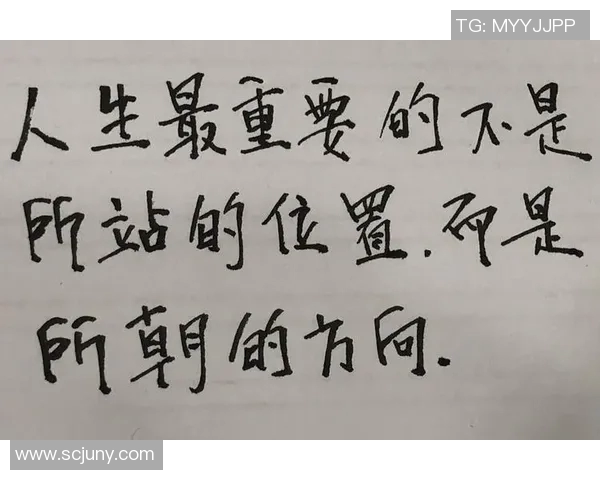 TG: MYYJJPP
人生最重要的不是
所站的位置.而是
所朝的方向.
www.scjuny.com